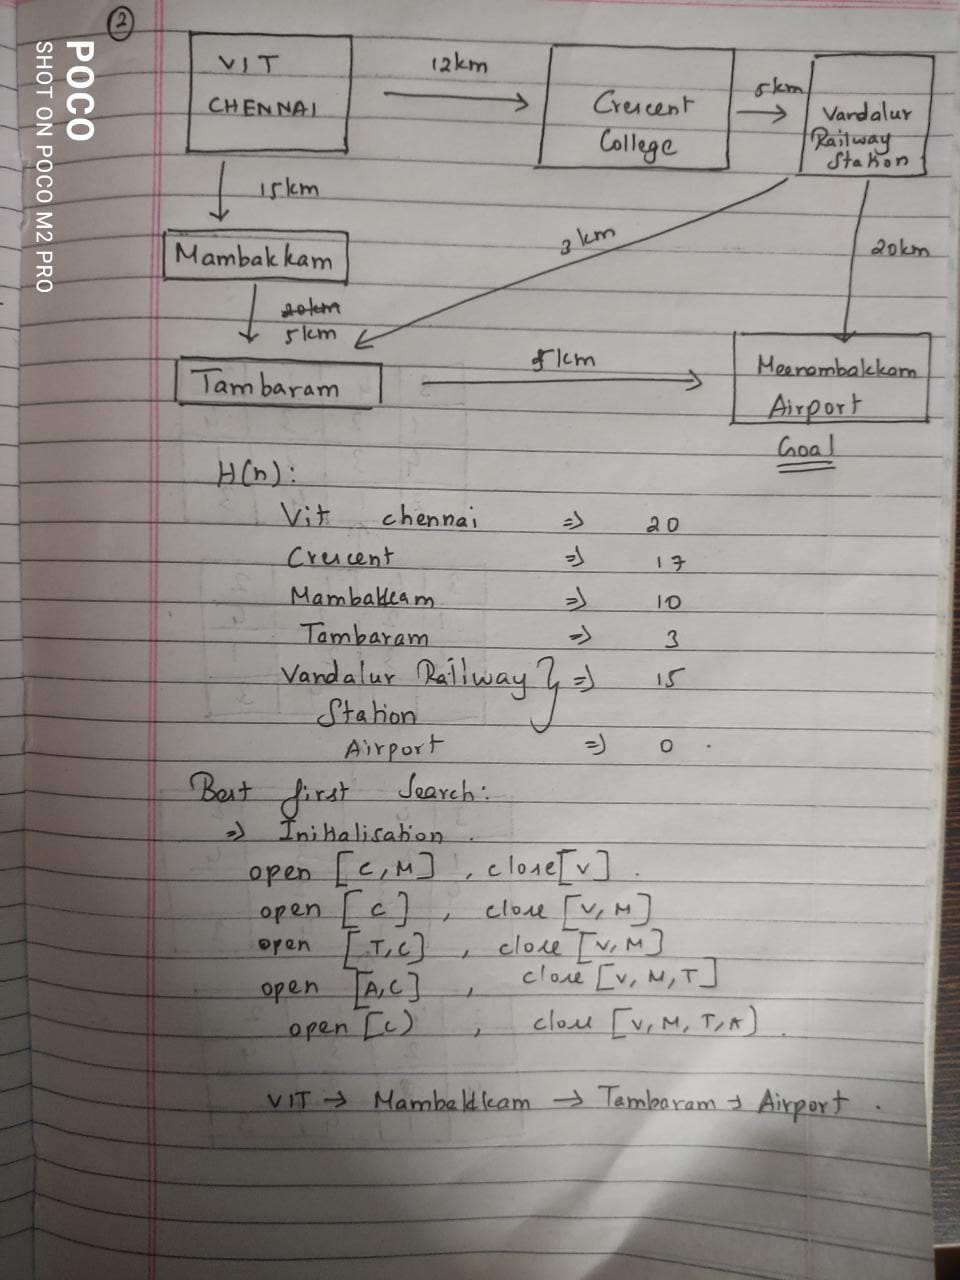 POCO
SHOT ON POCO M2 PRO
2
VIT
CHENNAI
12km
Crescent
College
5km
Vandalur
Railway
Station
15km
Mambakkam
3km
20km
20km
5km
Tambaram
5km
Meenambakkam
Airport
Goal
H(n):
Vit chennai => 20
Crescent => 17
Mambakkam => 10
Tambaram => 3
Vandalur Railway } => 15
Station
Airport => 0 .
Best first Search:
=> Initialisation .
open [C, M] , close [V] .
open [C] , close [V, M]
open [T, C] , close [V, M]
open [A, C] , close [V, M, T]
open [C) , close [V, M, T, A) .
VIT → Mambakkam → Tambaram → Airport .